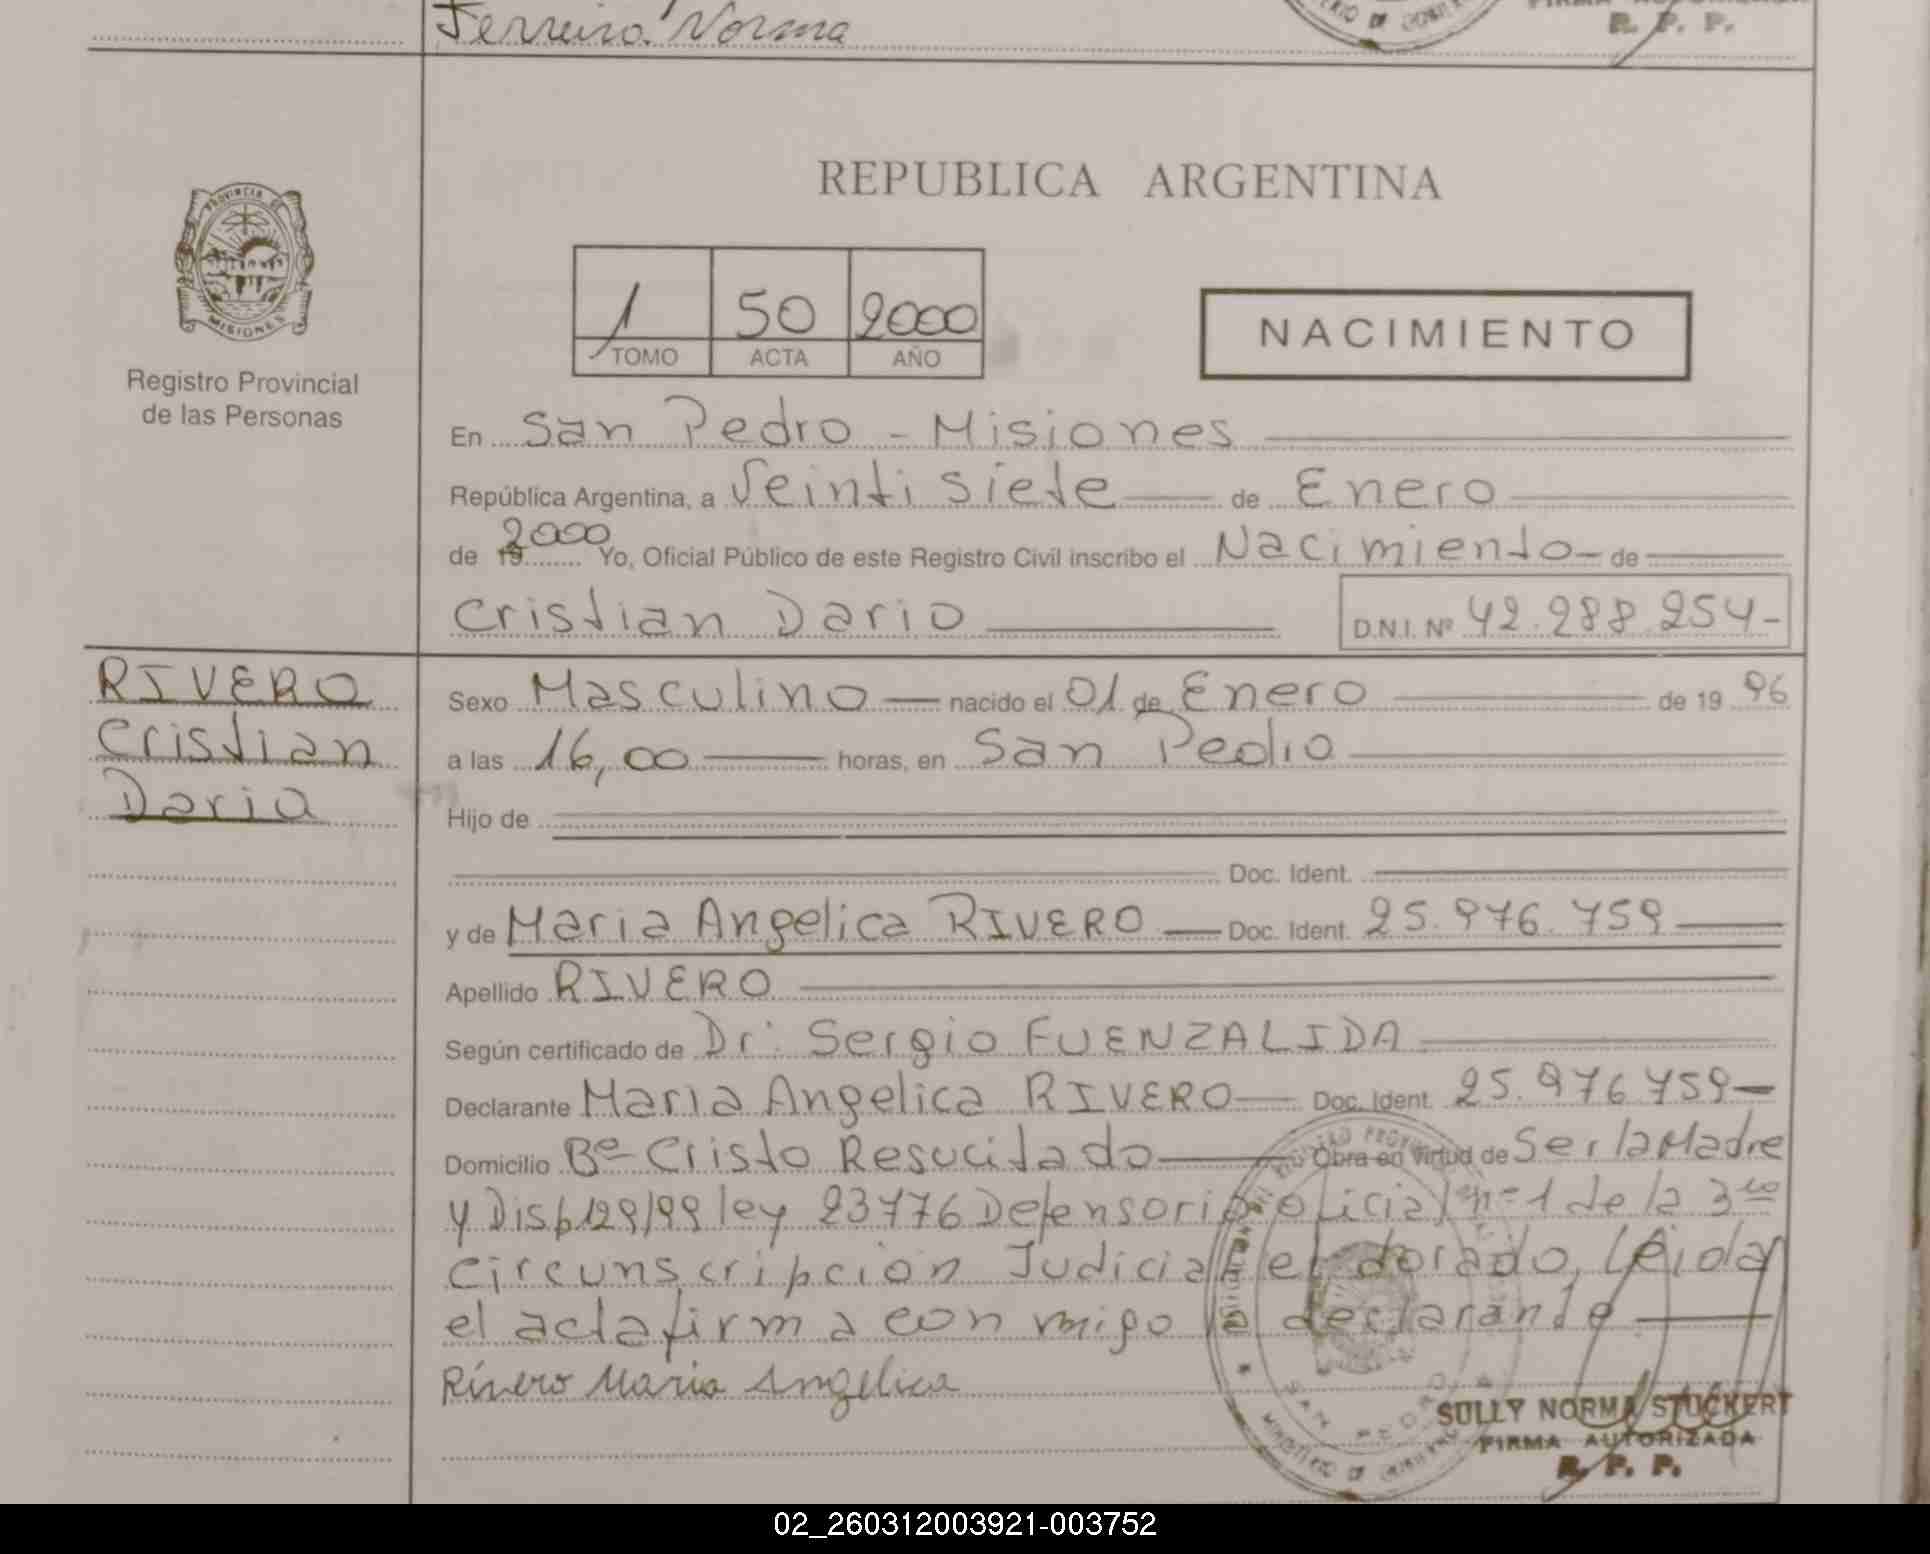 Ferreira Norma
R. P. P.
REPUBLICA ARGENTINA
PROVINCIA DE
MISIONES
Registro Provincial
de las Personas
1 50 2000
TOMO ACTA AÑO
NACIMIENTO
En San Pedro - Misiones
República Argentina, a Veintisiete de Enero
de 19 2000 Yo, Oficial Público de este Registro Civil inscribo el Nacimiento de
Cristian Dario D.N.I. Nº 42.288.254-
RIVERO
Cristian
Dario
Sexo Masculino nacido el 01 de Enero de 19 96
a las 16,00 horas, en San Pedro
Hijo de
Doc. Ident.
y de Maria Angelica RIVERO Doc. Ident. 25.976.759
Apellido RIVERO
Según certificado de Dr: Sergio FUENZALIDA
Declarante Maria Angelica RIVERO Doc. Ident. 25.976.759
Domicilio Bº Cristo Resucitado Obra en virtud de Ser la Madre
y Disp 129/99 ley 23776 Defensoria oficial nº 1 de la 3ra
circunscripción Judicial el dorado, Leida
el acta firma con migo la declarante
Rivero Maria Angelica
SAN PEDRO
MINISTERIO DE GOBIERNO
SULLY NORMA STUCKERT
FIRMA AUTORIZADA
R. P. P.
02_260312003921-003752